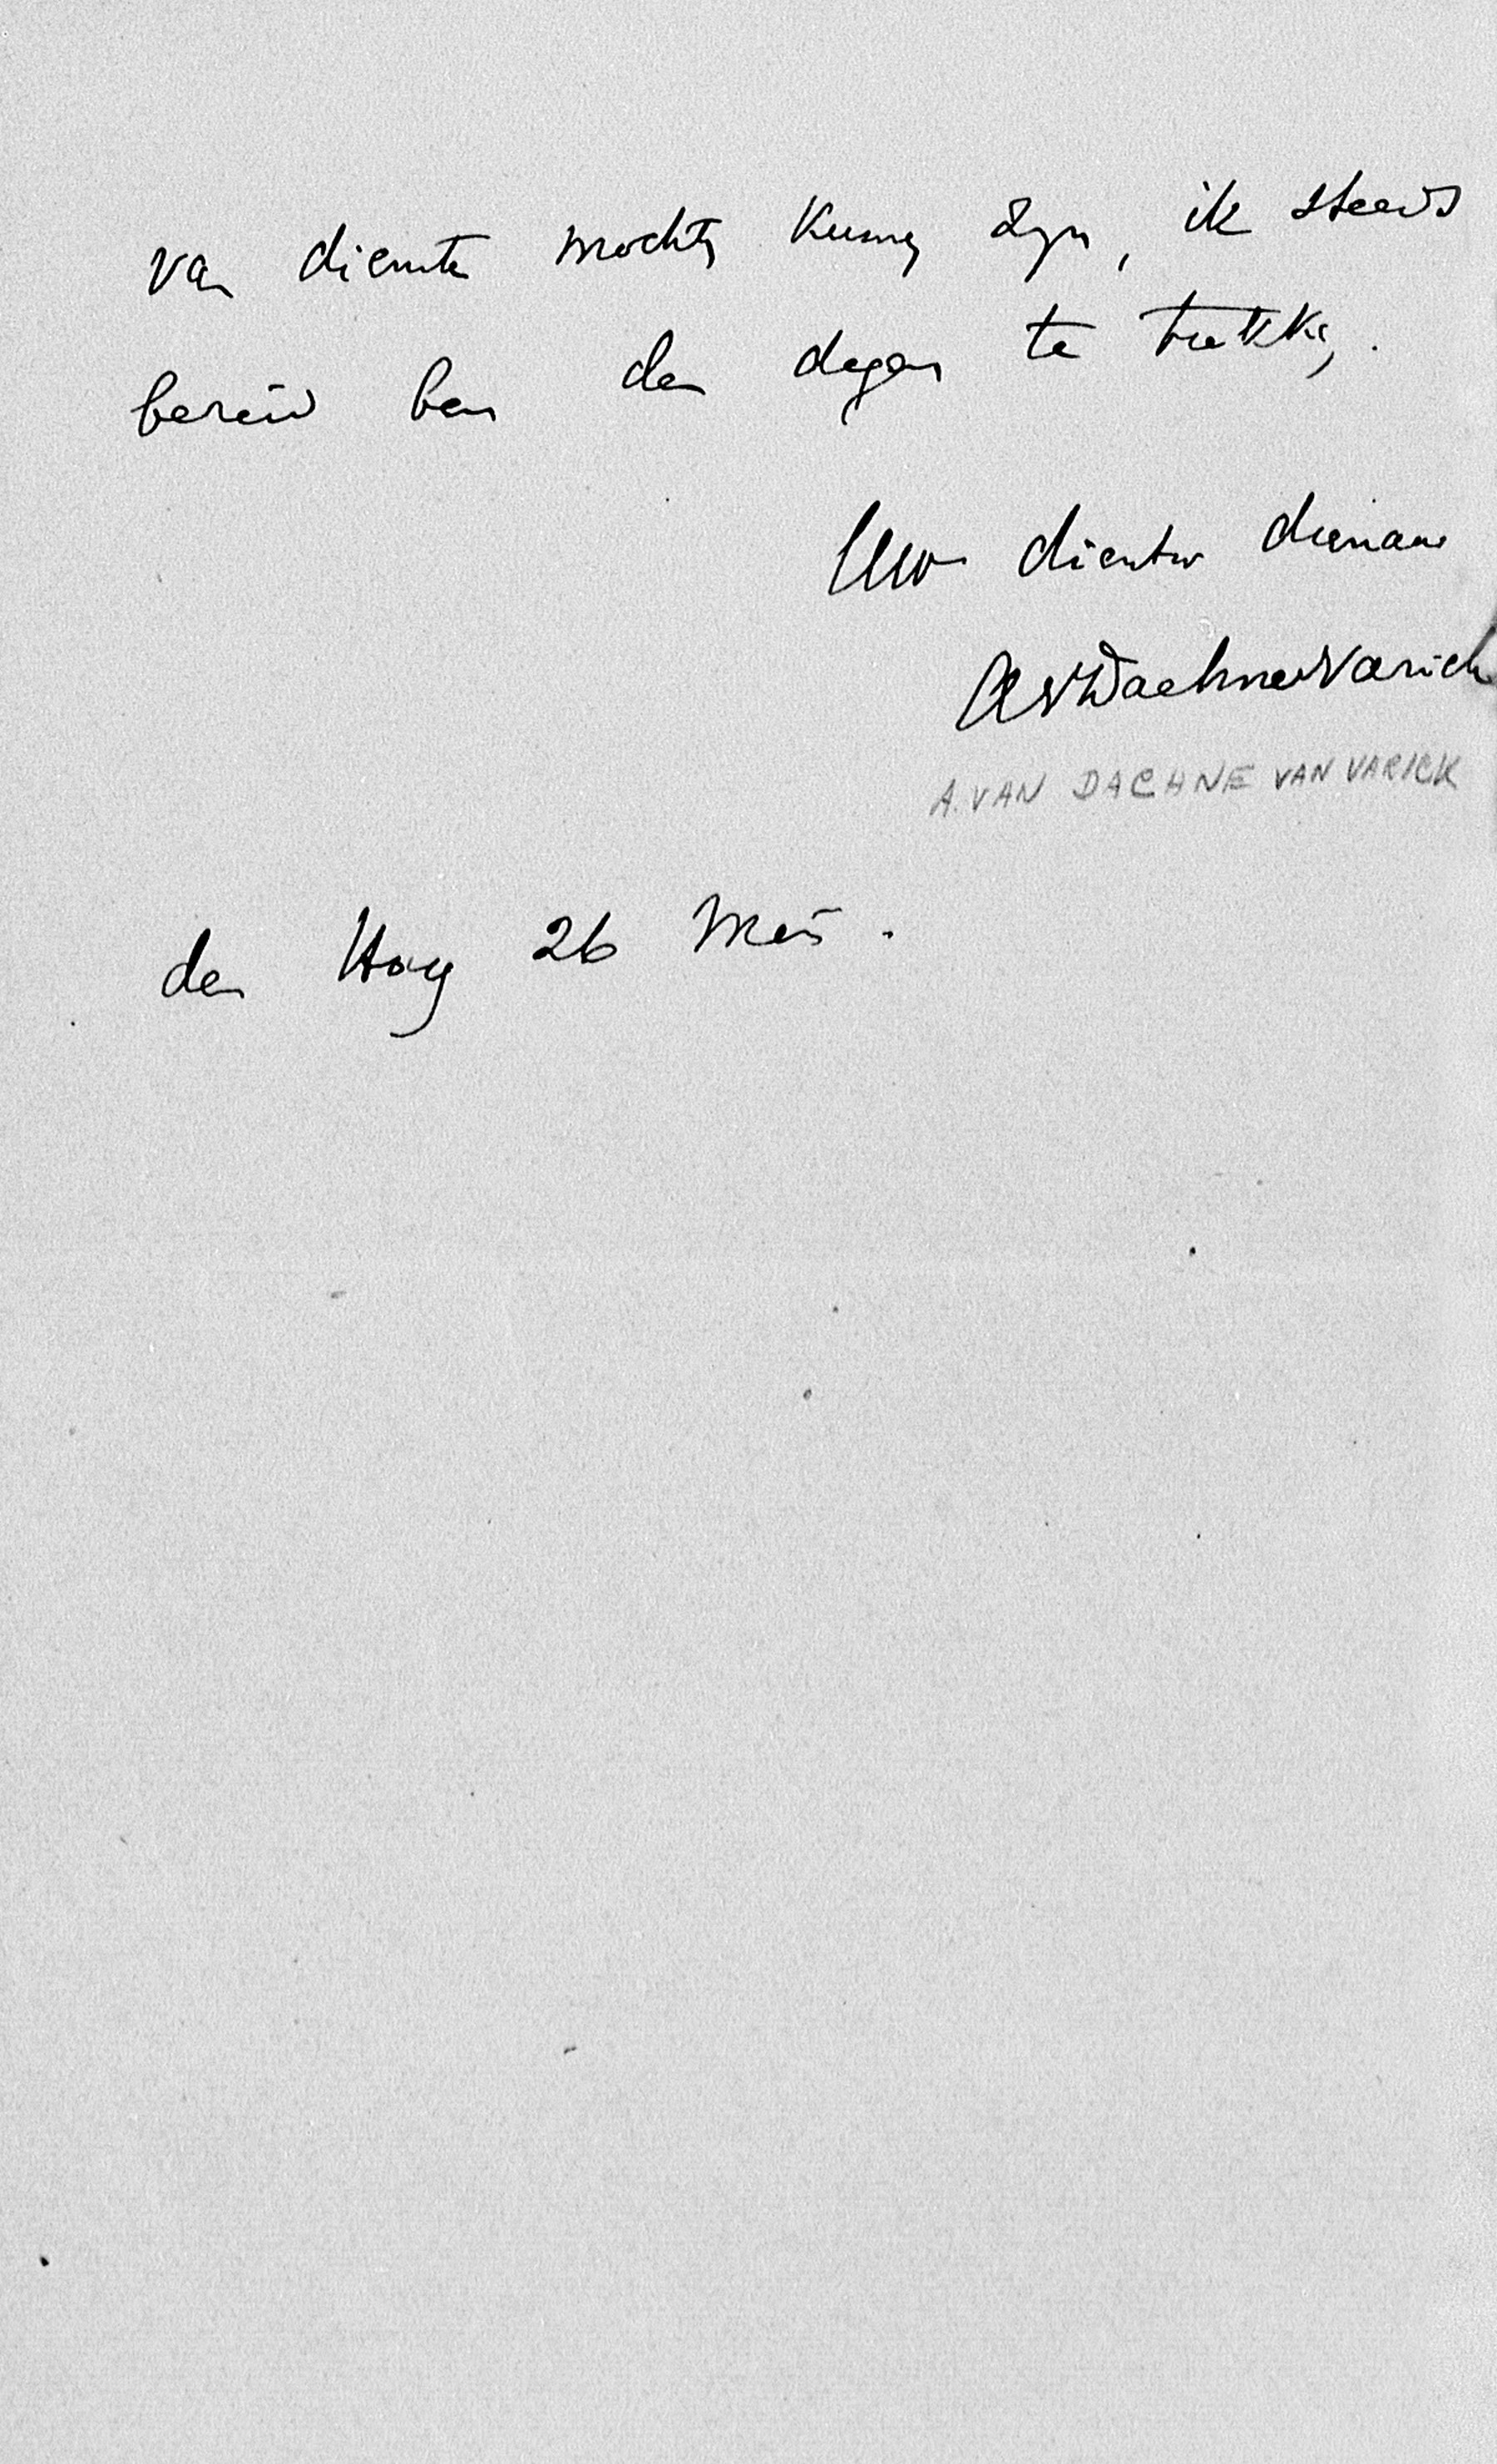 van dienste mochten kunnen zyn, ik steeds
bereid ben den degen te trekken.
Uw dientw dienaar
AvDaehnevVarick
A. VAN DACHNE VAN VARICK
den Haag 26 Mei.